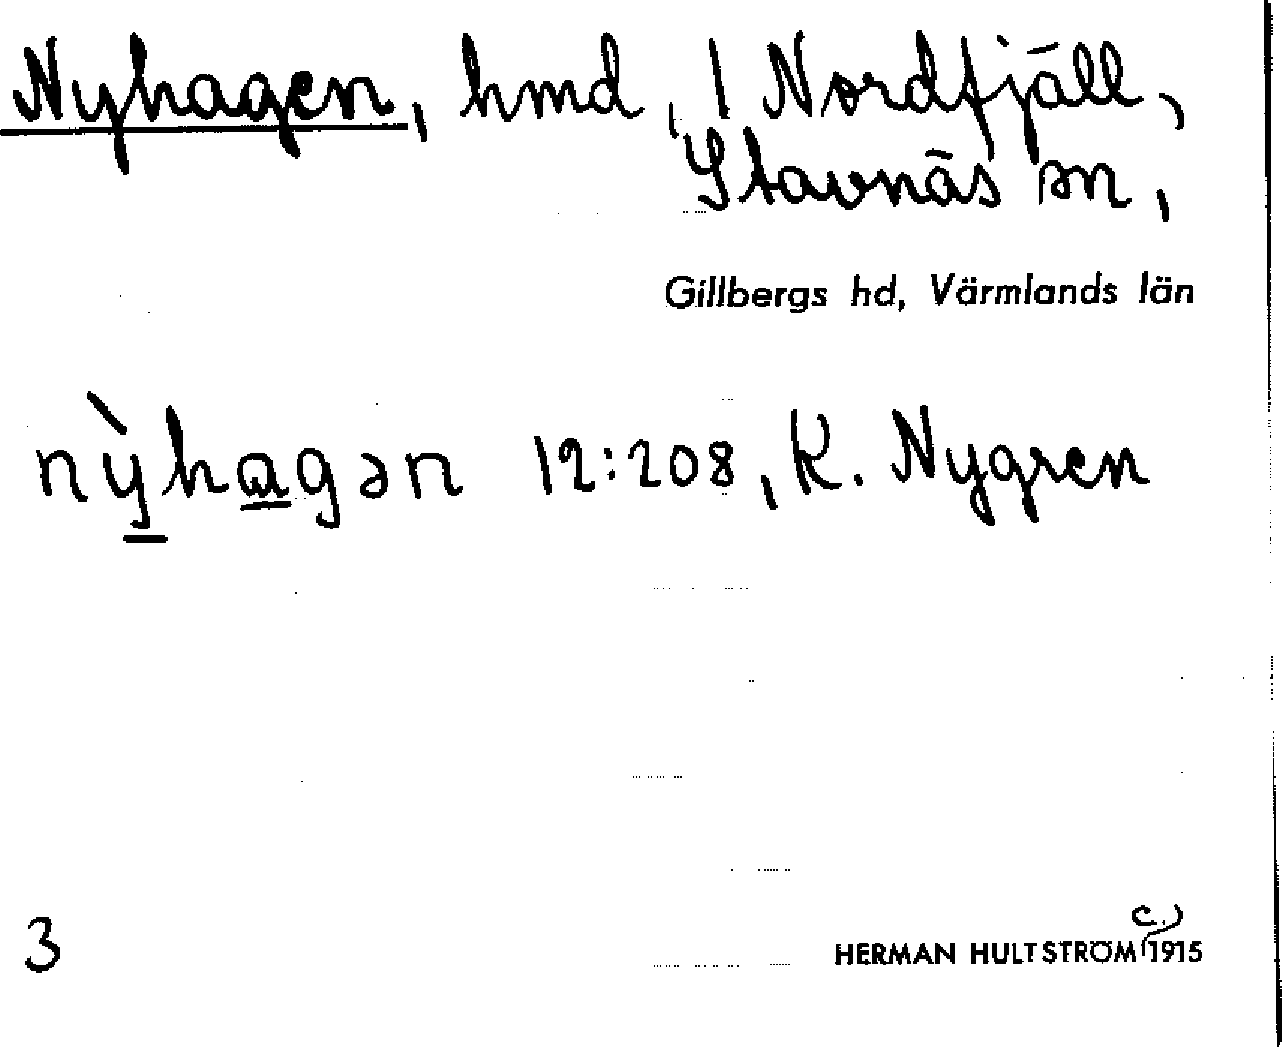 Nyhagen, hmd, 1 Nordfjäll,
Stavnäs sn,
Gillbergs hd, Värmlands län
nỳhagən 12:208, K. Nygren
3
c.)
HERMAN HULTSTRÖM 1915